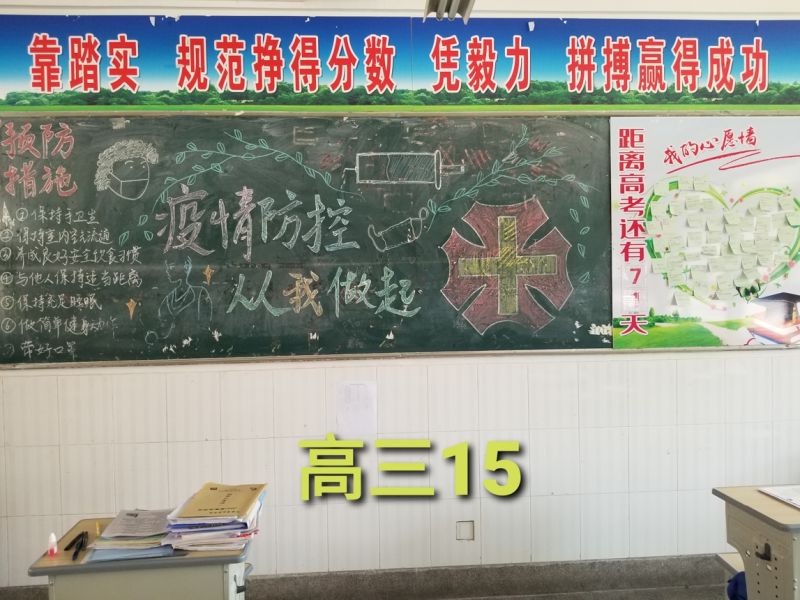 靠踏实 规范挣得分数 凭毅力 拼搏赢得成功
预防
措施
①保持手卫生
②保持室内空气流通
③养成良好安全饮食习惯
④与他人保持适当距离
⑤保持充足睡眠
⑥做简单健身动作
⑦带好口罩
疫情防控
从我做起
距离高考还有71天
我的心愿墙
高三15